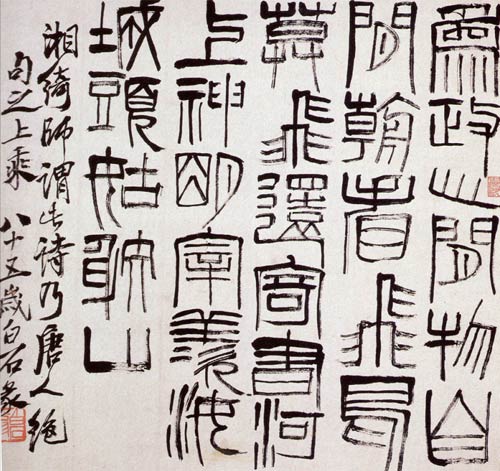 為政心閒物自
閒朝看飛鳥
莫飛還寄書河
上神明宰羨沵
城頭姑射山
湘綺師謂此詩乃唐人絕
句之上乘 八十五歲白石篆